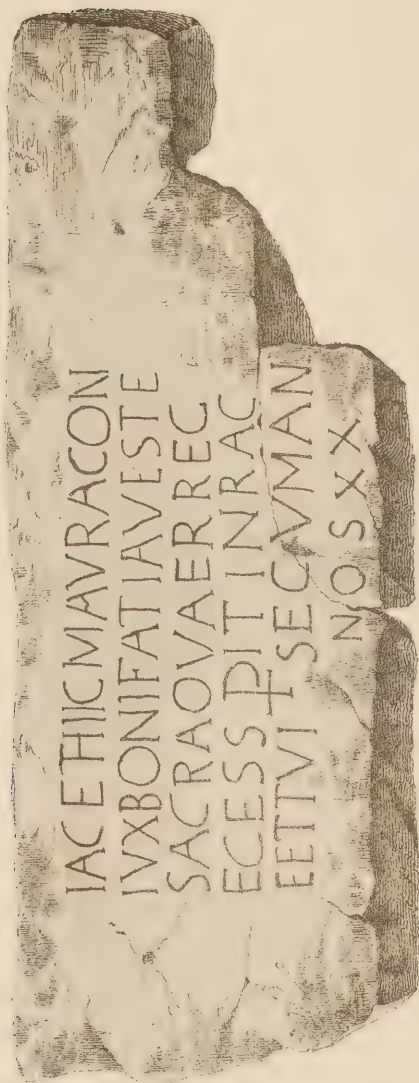 IACETHIICMAVRACON
IVXBONIFATIAVESTE
SACRAOVAERREC
ECESSPITINRAC
EETTVI+SECVMAN
NOSXX